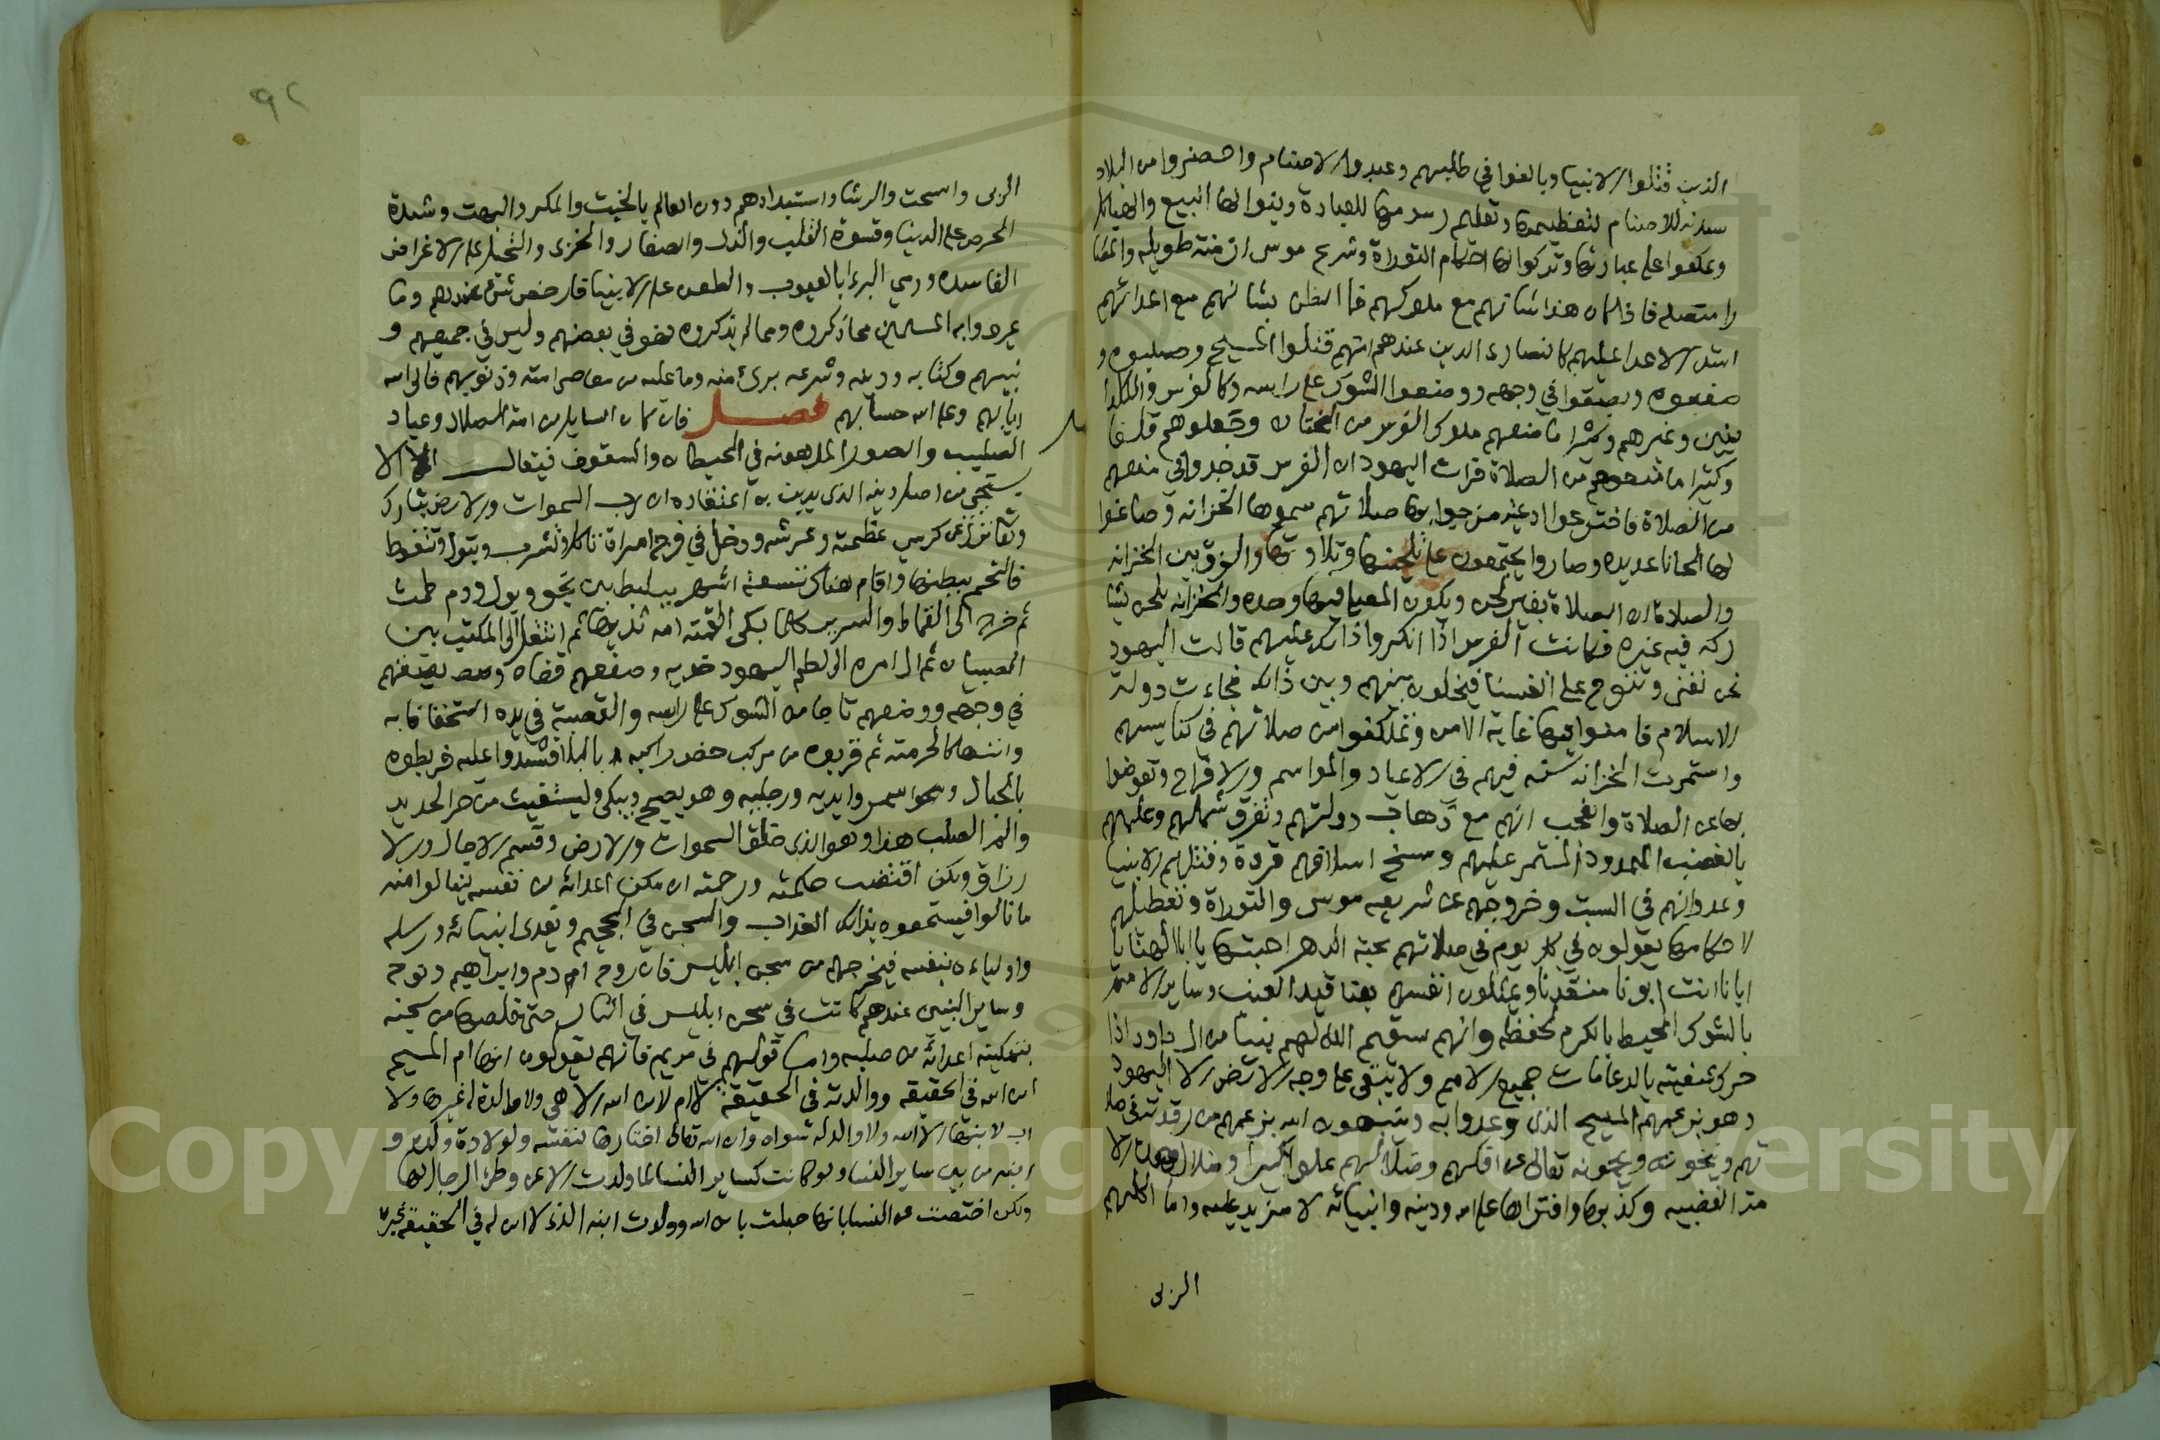 الذين قتلوا الانبيا وبالغوا في طلبهم وعبدوا الاصنام واحضروا من البلاد
سدنة للاصنام لتعظيمها وتعليم رسومها للعبادة وبنوا لها البيع والهياكل
وعكفوا على عبادتها وتركوا لها احكام التوراة وشرع موسى ازمنة طويله واعصا
را متصله فاذا كان هذا شانهم مع ملوكهم فما الظن بشانهم مع اعدائهم
اشد الاعدا عليهم كالنصارى الذين عندهم انهم قتلوا المسيح وصلبوه و
صفعوه وبصقوا في وجهه ووضعوا الشوك على راسه وكالفرس والكلدا
نيين وغيرهم وكثيرا ما منعهم ملوك الفرس من الختان وجعلوهم قلفا
وكثيرا ما منعوهم من الصلاة فرات اليهود ان الفرس قد جدوا في منعهم
من الصلاة فاخترعوا ادعية مزجوا بها صلاتهم سموها الخزانه وصاغوا
لها الحانا عديده وصاروا يجتمعون على تلحينها وتلاوتها والفرق بين الخزانه
والصلاة ان الصلاة بغير لحن ويكون المصلي فيها وحده والخزانه بلحن يشا
ركه فيه غيره فكانت الفرس اذا انكروا ذلك عليهم قالت اليهود
نحن نغني وننوح على انفسنا فيخلون بينهم وبين ذلك فجاءت دولة
الاسلام فامنوا فيها غاية الامن وتمكنوا من صلاتهم في كنايسهم
واستمرت الخزانه سنة فيهم في الاعياد والمواسم والافراح وتعوضوا
بها عن الصلاة والعجب انهم مع ذهاب دولتهم وتفرق شملهم وعلمهم
بالغضب الممدود المستمر عليهم ومسخ اسلافهم قردة وقتلهم الانبيا
وعدوانهم في السبت وخروجهم عن شريعه موسى والتوراة وتعطيلهم
لاحكامها يقولون في كل يوم في صلاتهم محبة الدهر احبتنا يا الهنا يا
ابانا انت ابونا منقذنا ويمثلون انفسهم بعناقيد العنب وساير الامم
بالشوك المحيط بالكرم لحفظه وانهم سيقيم الله لهم نبيا من ال داود اذا
حرك شفتيه بالدعا مات جميع الامم ولا يبقى على وجه الارض الا اليهود
وهو بزعمهم المسيح الذي وعدوا به وينبهون الله بزعمهم من رقدته في صلا
تهم وينخونه ويحمونه تعالى عن افكهم وضلالهم علوا كبيرا وضلال هذه الا
مة الغضبيه وكذبها وافتراها على الله ودينه وانبيائه لا مزيد عليه واما اكلهم
الربى
الربى والسحت والرشا واستبدادهم دون العالم بالخبث والمكر والبهت وشدة
الحرص على الدنيا وقسوة القلب والذل والصغار والخزى والتحيل على الاغراض
الفاسده ورمي البرءا بالعيوب والطعن على الانبيا فارخص شئ عندهم وما
عيروا به المسلمين مما ذكروه ومما لم يذكروه فهو في بعضهم وليس في جميعهم و
نبيهم وكتابه ودينه وشرعه برئ منه وما عليه من معاصى امته وذنوبهم فالى الله
ايابهم وعلى الله حسابهم فصـــل فان كان السايل من امة الضلال وعباد
الصليب والصور المدهونه في الحيطان والسقوف فيقال له الا
يستحي من اصل دينه الذى يدين به اعتقاده ان رب السموات والارض تبارك
وتعالى نزل عن كرسي عظمته وعرشه ودخل في فرج امراة تاكل وتشرب وتبول وتتغوط
فالتحم ببطنها واقام هناك تسعة اشهر يتلبط بين نجو وبول ودم طمث
ثم خرج الى القماط والسرير كلما بكى القمته امه ثديها ثم انتقل الى المكتب بين
الصبيان ثم ال امره الى لطم اليهود خديه وصفعهم قفاه وبصقهم
في وجهه ووضعهم تاجا من الشوك على راسه والقصبة في يده استخفافا به
وانتهاكا لحرمته ثم قربوه من مركب خص راكبه بالبلا فشدوا عليه وربطوه
بالحبال وسمروا يديه ورجليه وهو يصيح ويبكى ويستغيث من حر الحديد
والم الصلب هذا وهو الذى خلق السموات والارض وقسم الاجال والا
رزاق ولكن اقتضت حكمته ورحمته ان مكن اعدائه من نفسه لينالوا منه
ما نالوا فيستحقوه بذلك العذاب والسجن في الجحيم ويفدى انبيائه ورسله
واولياءه بنفسه فيخرجهم من سجن ابليس فان روح ادم وابراهيم ونوح
وساير النبيين عندهم كانت في سجن ابليس في النار حتى خلصها من سجنه
بتمكينه اعدائه من صلبه واما قولهم في مريم فانهم يقولون انها ام المسيح
ابن الله في الحقيقه ووالدته في الحقيقه لا ام لابن الله الا هي ولا والدة له غيرها ولا
اب لابنها الا الله ولا والد له سواه وان الله تعالى اختارها لنفسه ولولادة ولده و
ابنه من بين ساير النسا ولو كانت كساير النسا لما ولدت الا عن وطئ الرجال لها
ولكن اختصت عن النسا بانها حبلت بابن الله وولدت ابنه الذى لا ابن له في الحقيقة غيره